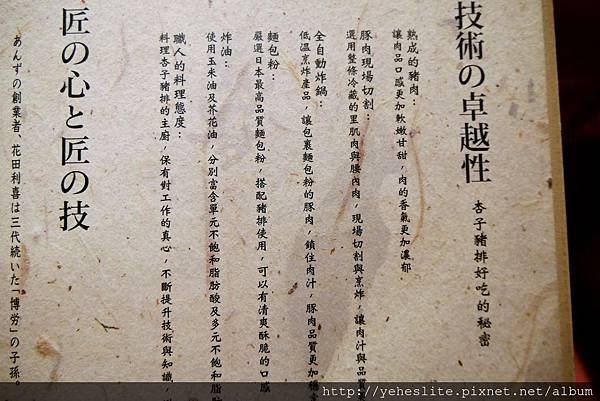 技術の卓越性
杏子豬排好吃的秘密
熟成的豬肉：
讓肉品口感更加軟嫩甘甜，肉的香氣更加濃郁
豚肉現場切割：
選用整條冷藏的里肌肉與腰內肉，現場切割與烹炸，讓肉汁與品質
全自動炸鍋：
低溫烹炸產品，讓包裹麵包粉的豚肉，鎖住肉汁，豚肉品質更加穩定
麵包粉：
嚴選日本最高品質麵包粉，搭配豬排使用，可以有清爽酥脆的口感
炸油：
使用玉米油及芥花油，分別富含單元不飽和脂肪酸及多元不飽和脂肪
職人的料理態度：
料理杏子豬排的主廚，保有對工作的真心，不斷提升技術與知識，
匠の心と匠の技
あんずの創業者、花田利喜は三代続いた「博労」の子孫。
http://yeheslite.pixnet.net/album